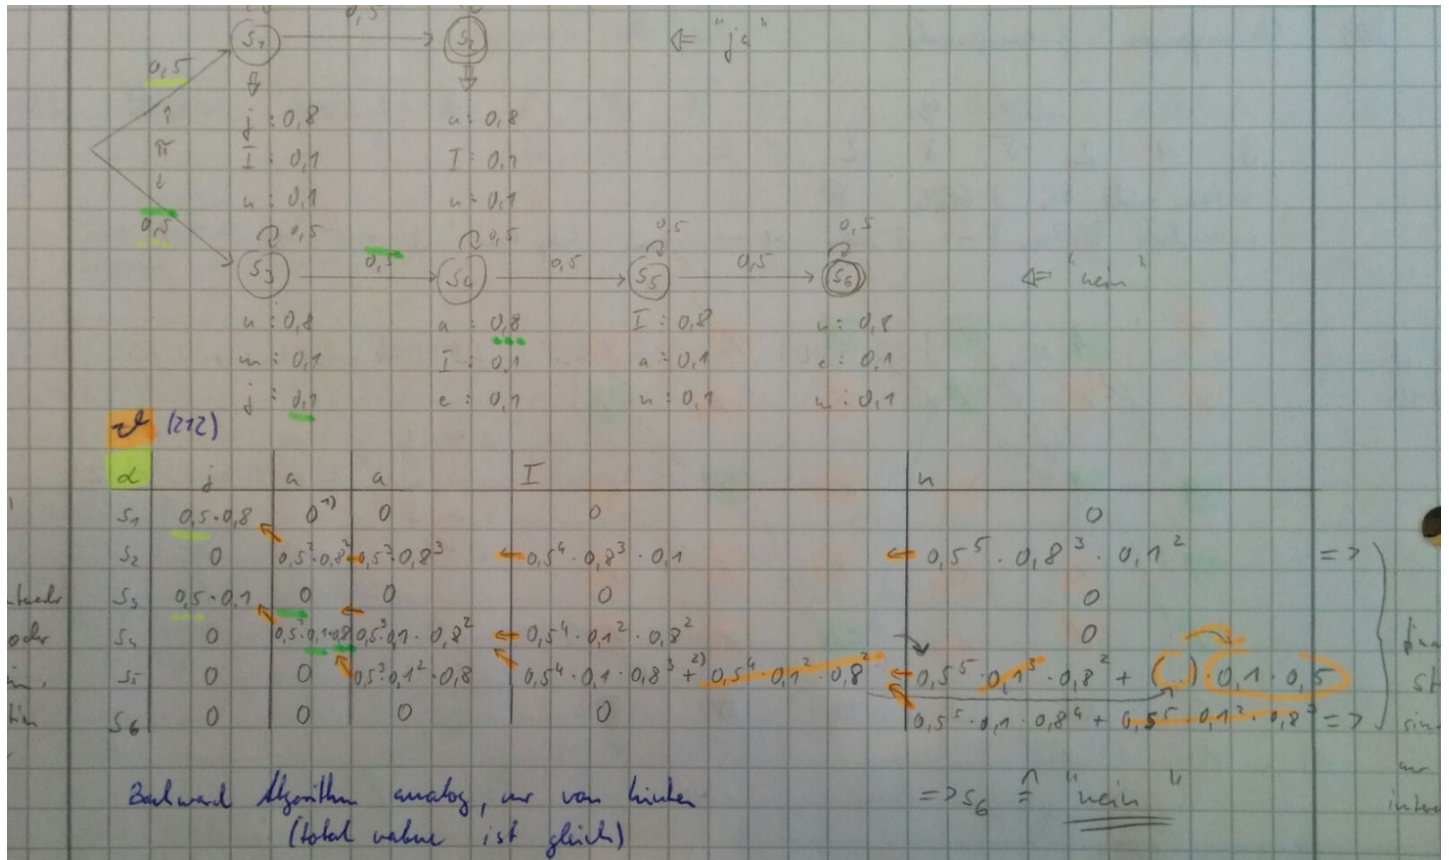 0,5
S1 S2 <= "ja"
0,5
j : 0,8 a : 0,8
π
I : 0,1 I : 0,1
n : 0,1 n : 0,1
0,5
0,5 0,5 0,5 0,5
S3 0,5 S4 0,5 S5 0,5 S6 <= "nein"
n : 0,8 a : 0,8 I : 0,8 n : 0,8
m : 0,1 I : 0,1 a : 0,1 e : 0,1
j : 0,1 e : 0,1 n : 0,1 m : 0,1
(212)
α j a a I n
S1 0,5·0,8 0 1) 0 0 0
S2 0 0,5²·0,8² 0,5³·0,8³ 0,5⁴·0,8³·0,1 0,5⁵·0,8³·0,1² =>
S3 0,5·0,1 0 0 0 0
oder
S4 0 0,5²·0,1·0,8 0,5³·0,1·0,8² 0,5⁴·0,1²·0,8² 0
S5 0 0 0,5³·0,1²·0,8 0,5⁴·0,1·0,8³ + 2) 0,5⁴·0,1²·0,8² 0,5⁵·0,1³·0,8² + (...)·0,1·0,5
S6 0 0 0 0 0,5⁵·0,1·0,8⁴ + 0,5⁵·0,1²·0,8³ =>
Backward Algorithm analog, nur von hinten => S6 ≙ "nein"
(total value ist gleich)